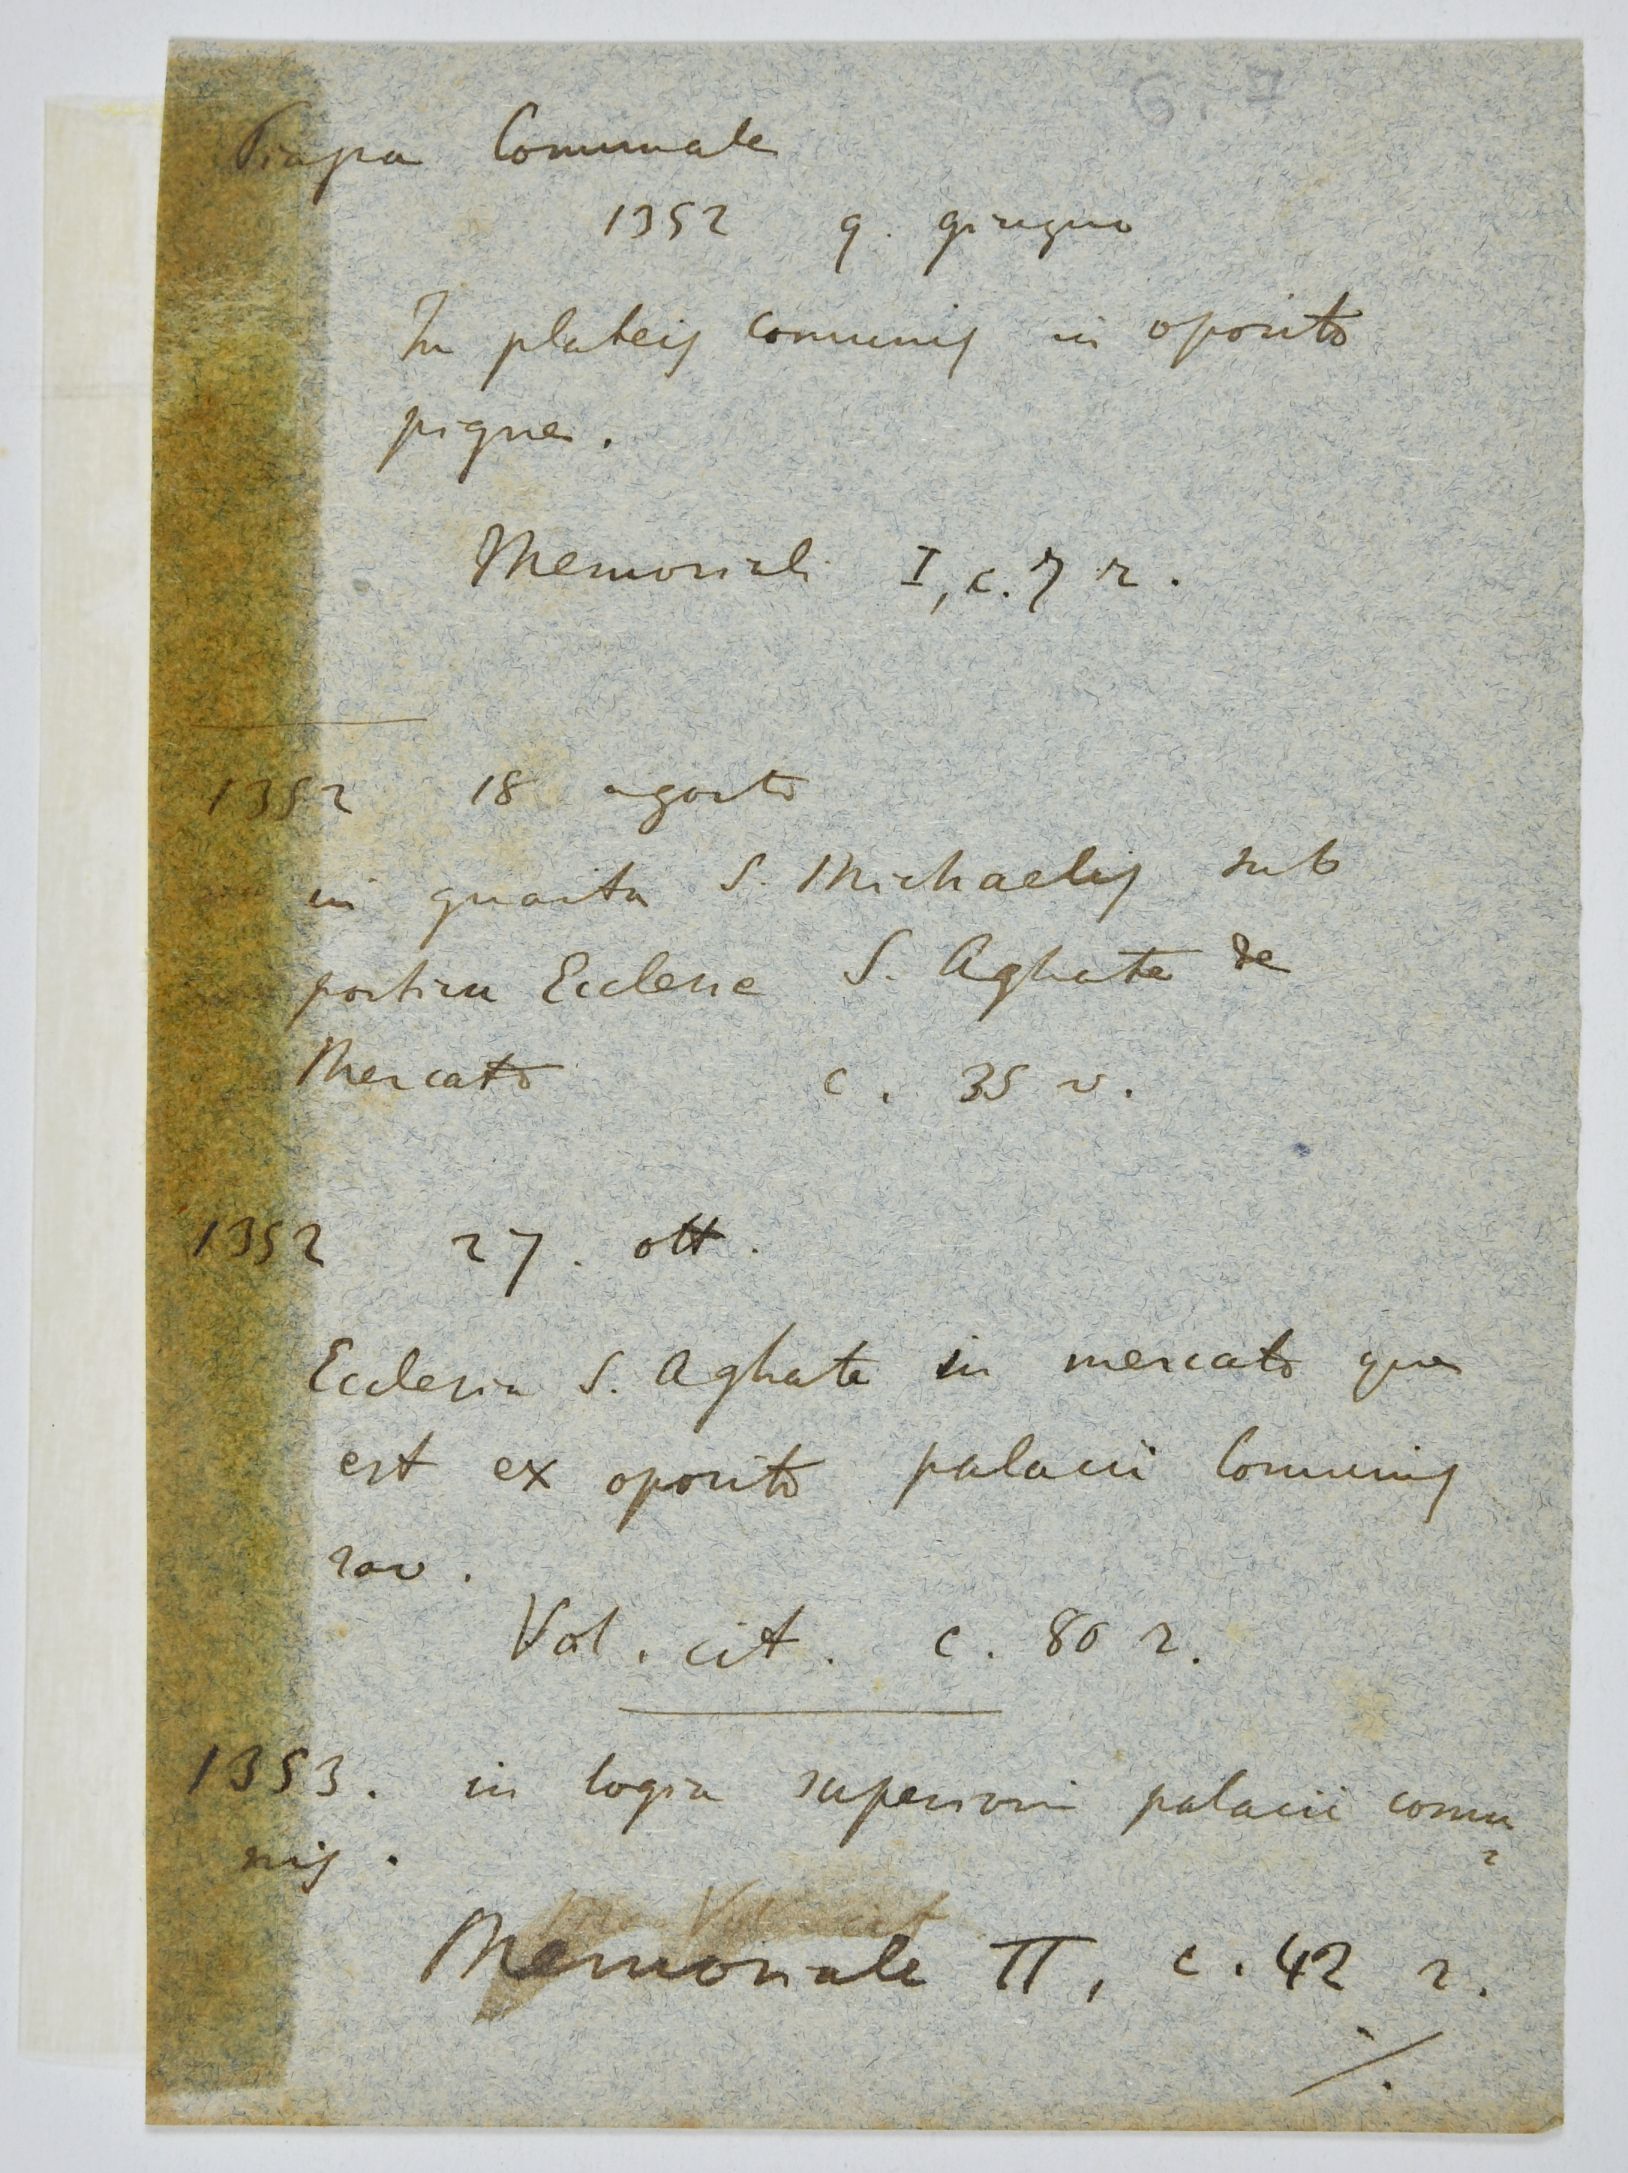 Piazza Comunale
1352 9. giugno
In plateis comunis in oposito
pigne.
Memoriale I, c. 7 r.
1352 18 agosto
in guaita S. Michaelis sub
porticu Ecclesie S. Aghate de
Mercato c. 35 v.
1352 27. ott.
Ecclesia S. Aghate in mercato que
est ex oposito palacii Comunis
rav.
Vol. cit. c. 80 r.
1353. in logia superiori palacii comu
nis.
Memoriale II, c. 42 r.
./.